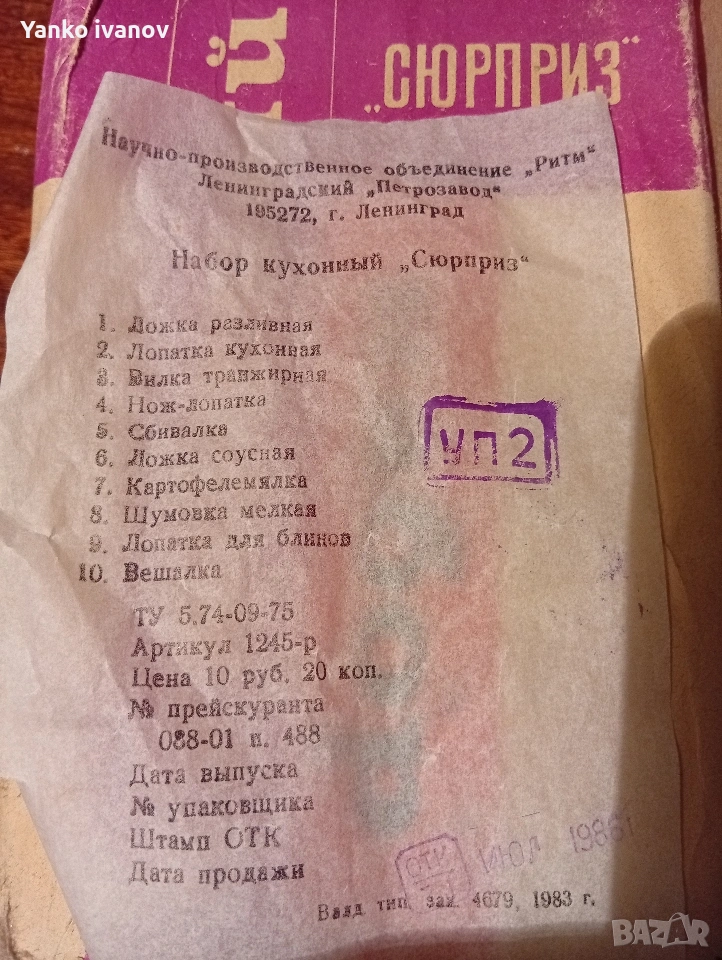 Yanko ivanov
ый
„СЮРПРИЗ"
Научно-производственное объединение „Ритм"
Ленинградский „Петрозавод"
195272, г. Ленинград
Набор кухонный „Сюрприз"
1. Ложка разливная
2. Лопатка кухонная
3. Вилка транжирная
4. Нож-лопатка
5. Сбивалка
6. Ложка соусная
7. Картофелемялка
8. Шумовка мелкая
9. Лопатка для блинов
10. Вешалка
УП2
ТУ 5.74-09-75
Артикул 1245-р
Цена 10 руб. 20 коп.
№ прейскуранта
088-01 п. 488
Дата выпуска
№ упаковщика
Штамп ОТК
Дата продажи
ОТК
ИЮЛ 1986
Валд тип. зак. 4679, 1983 г.
BAZAR